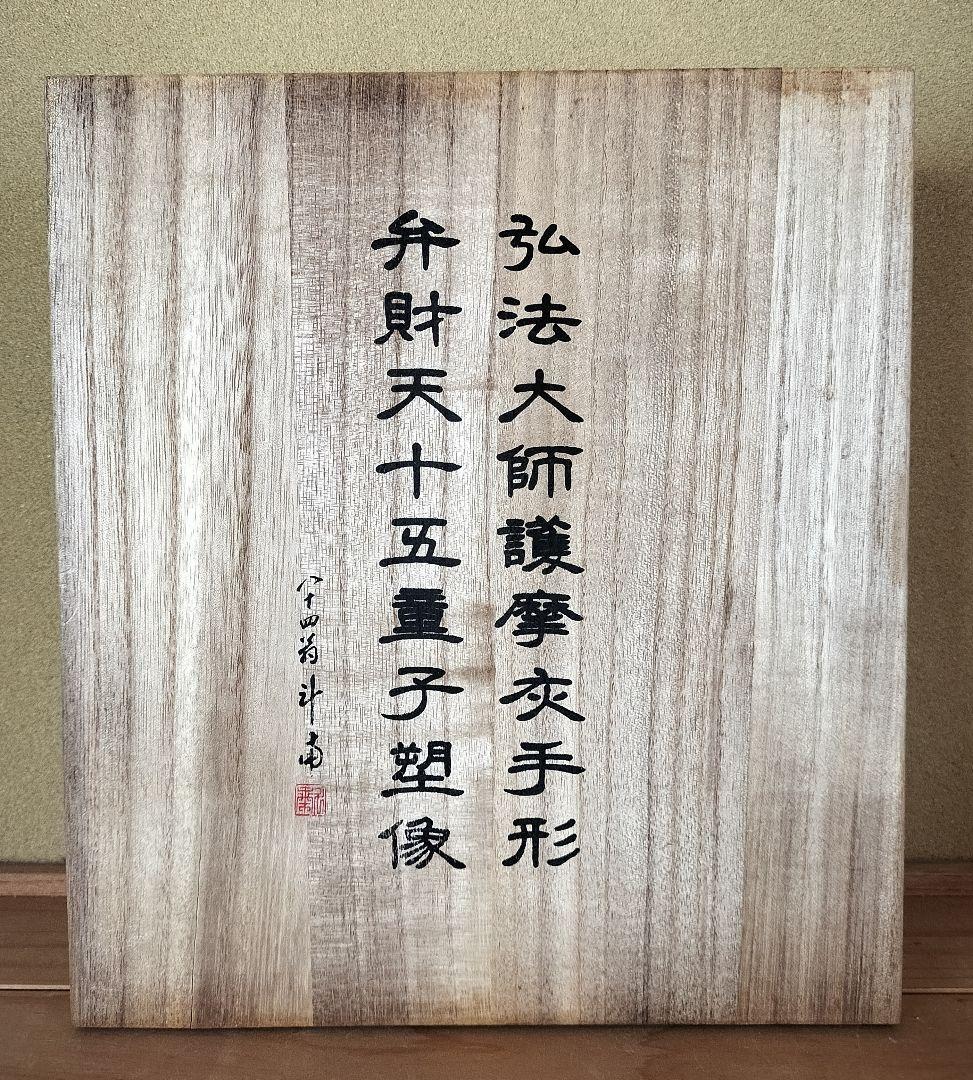 弘法大師護摩灰手形
弁財天十五童子塑像
八十四翁斗南